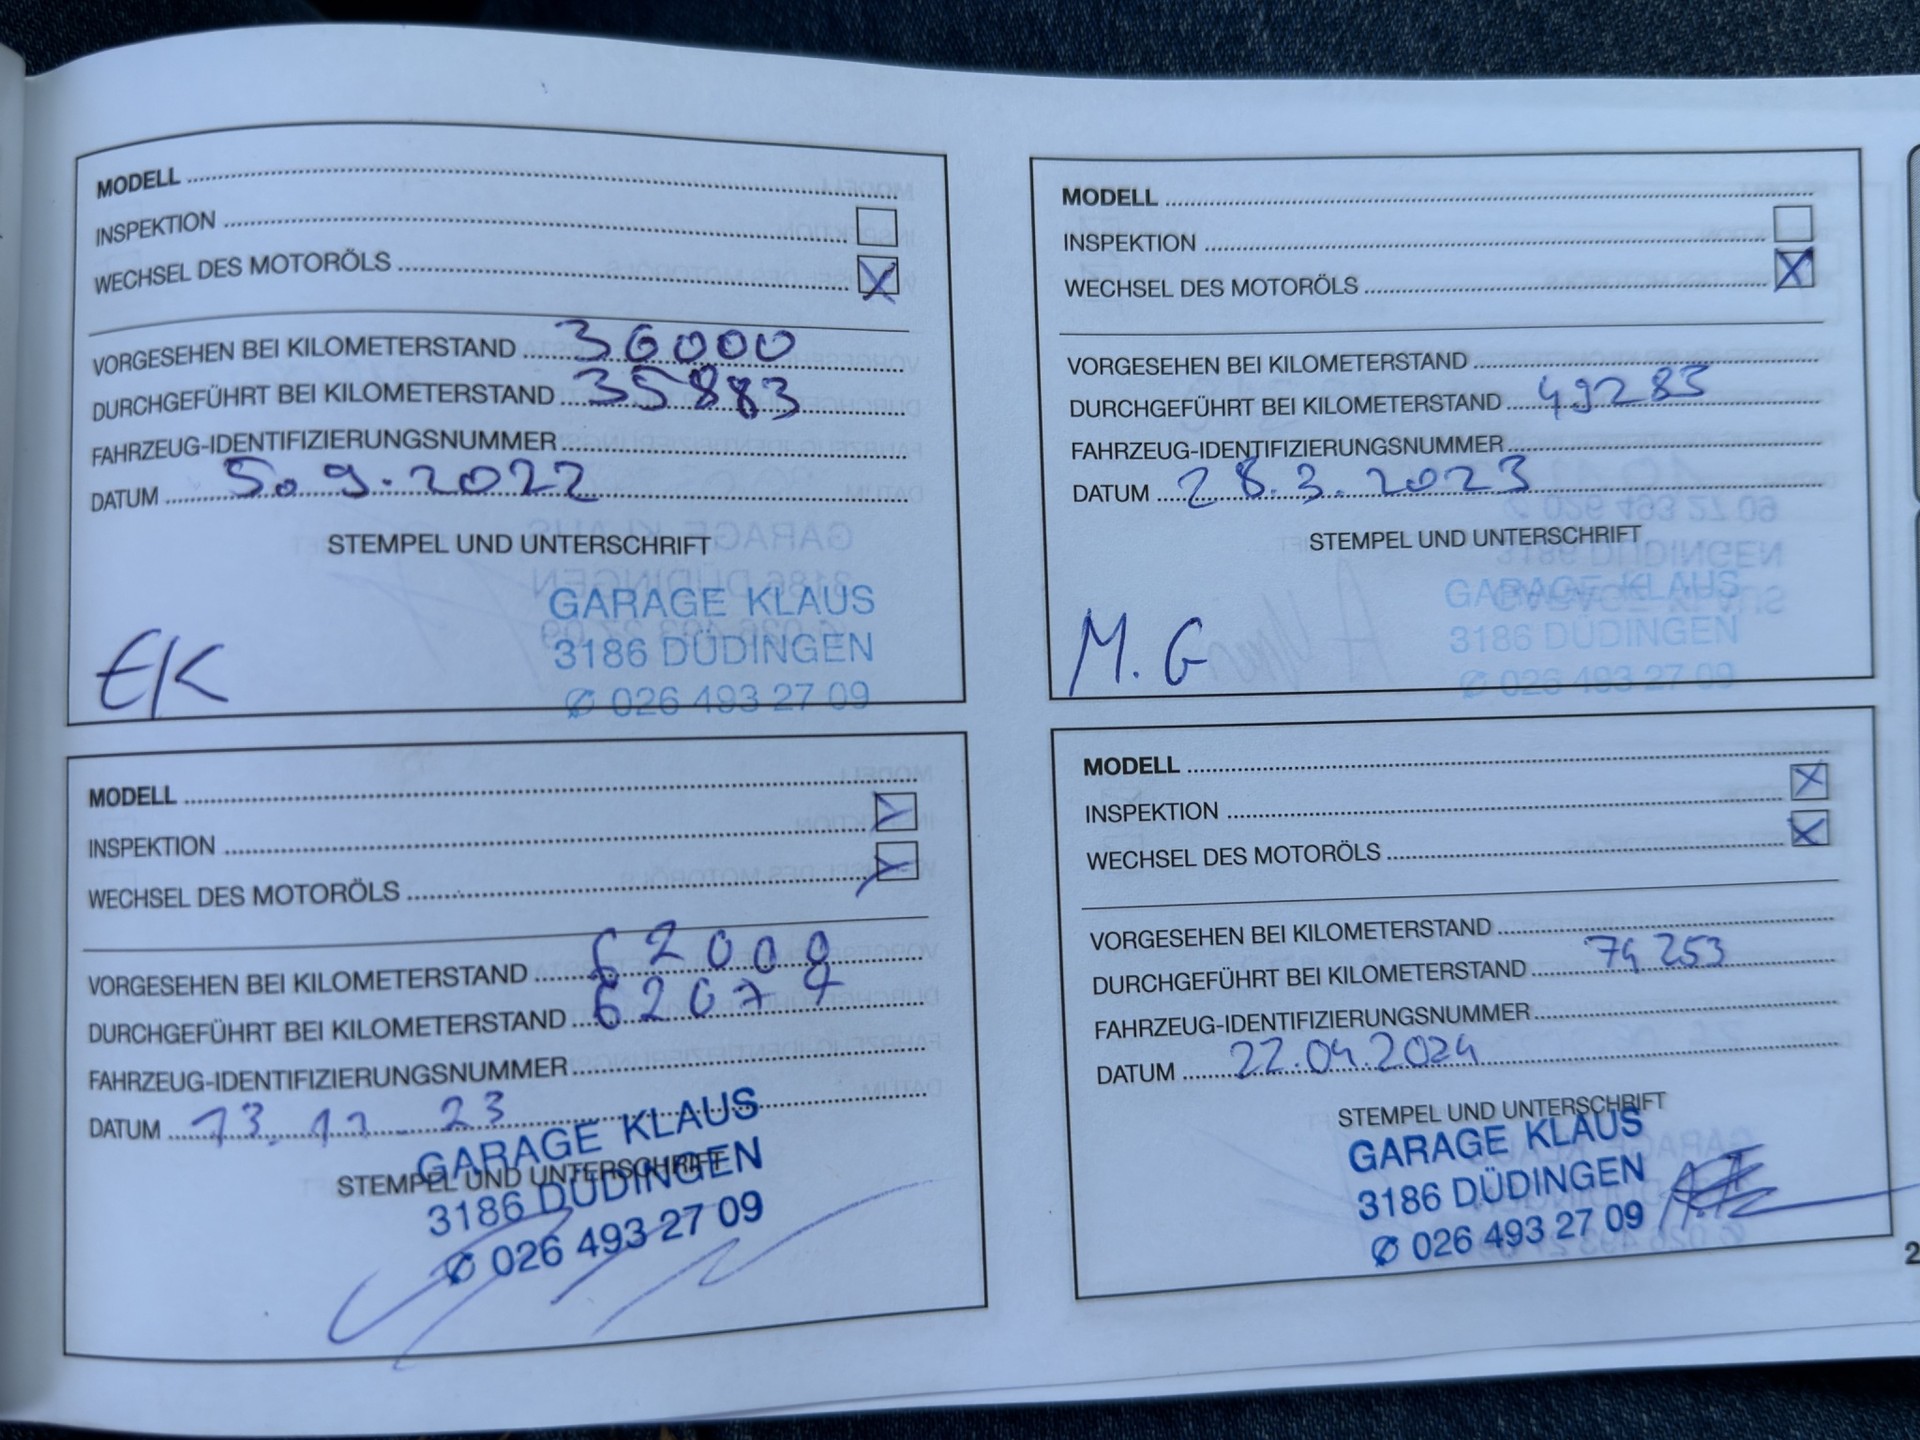 MODELL
INSPEKTION
WECHSEL DES MOTORÖLS X
VORGESEHEN BEI KILOMETERSTAND 36000
DURCHGEFÜHRT BEI KILOMETERSTAND 35883
FAHRZEUG-IDENTIFIZIERUNGSNUMMER
DATUM 5.9.2022
STEMPEL UND UNTERSCHRIFT
GARAGE KLAUS
3186 DÜDINGEN
✆ 026 493 27 09
EK
MODELL
INSPEKTION
WECHSEL DES MOTORÖLS X
VORGESEHEN BEI KILOMETERSTAND
DURCHGEFÜHRT BEI KILOMETERSTAND 49285
FAHRZEUG-IDENTIFIZIERUNGSNUMMER
DATUM 28.3.2023
STEMPEL UND UNTERSCHRIFT
GARAGE KLAUS
3186 DÜDINGEN
✆ 026 493 27 09
M. G
MODELL
INSPEKTION X
WECHSEL DES MOTORÖLS X
VORGESEHEN BEI KILOMETERSTAND 62000
DURCHGEFÜHRT BEI KILOMETERSTAND
FAHRZEUG-IDENTIFIZIERUNGSNUMMER
DATUM 13.11.23
STEMPEL UND UNTERSCHRIFT
GARAGE KLAUS
3186 DÜDINGEN
✆ 026 493 27 09
MODELL
INSPEKTION X
WECHSEL DES MOTORÖLS X
VORGESEHEN BEI KILOMETERSTAND
DURCHGEFÜHRT BEI KILOMETERSTAND 74253
FAHRZEUG-IDENTIFIZIERUNGSNUMMER
DATUM 22.04.2024
STEMPEL UND UNTERSCHRIFT
GARAGE KLAUS
3186 DÜDINGEN
✆ 026 493 27 09